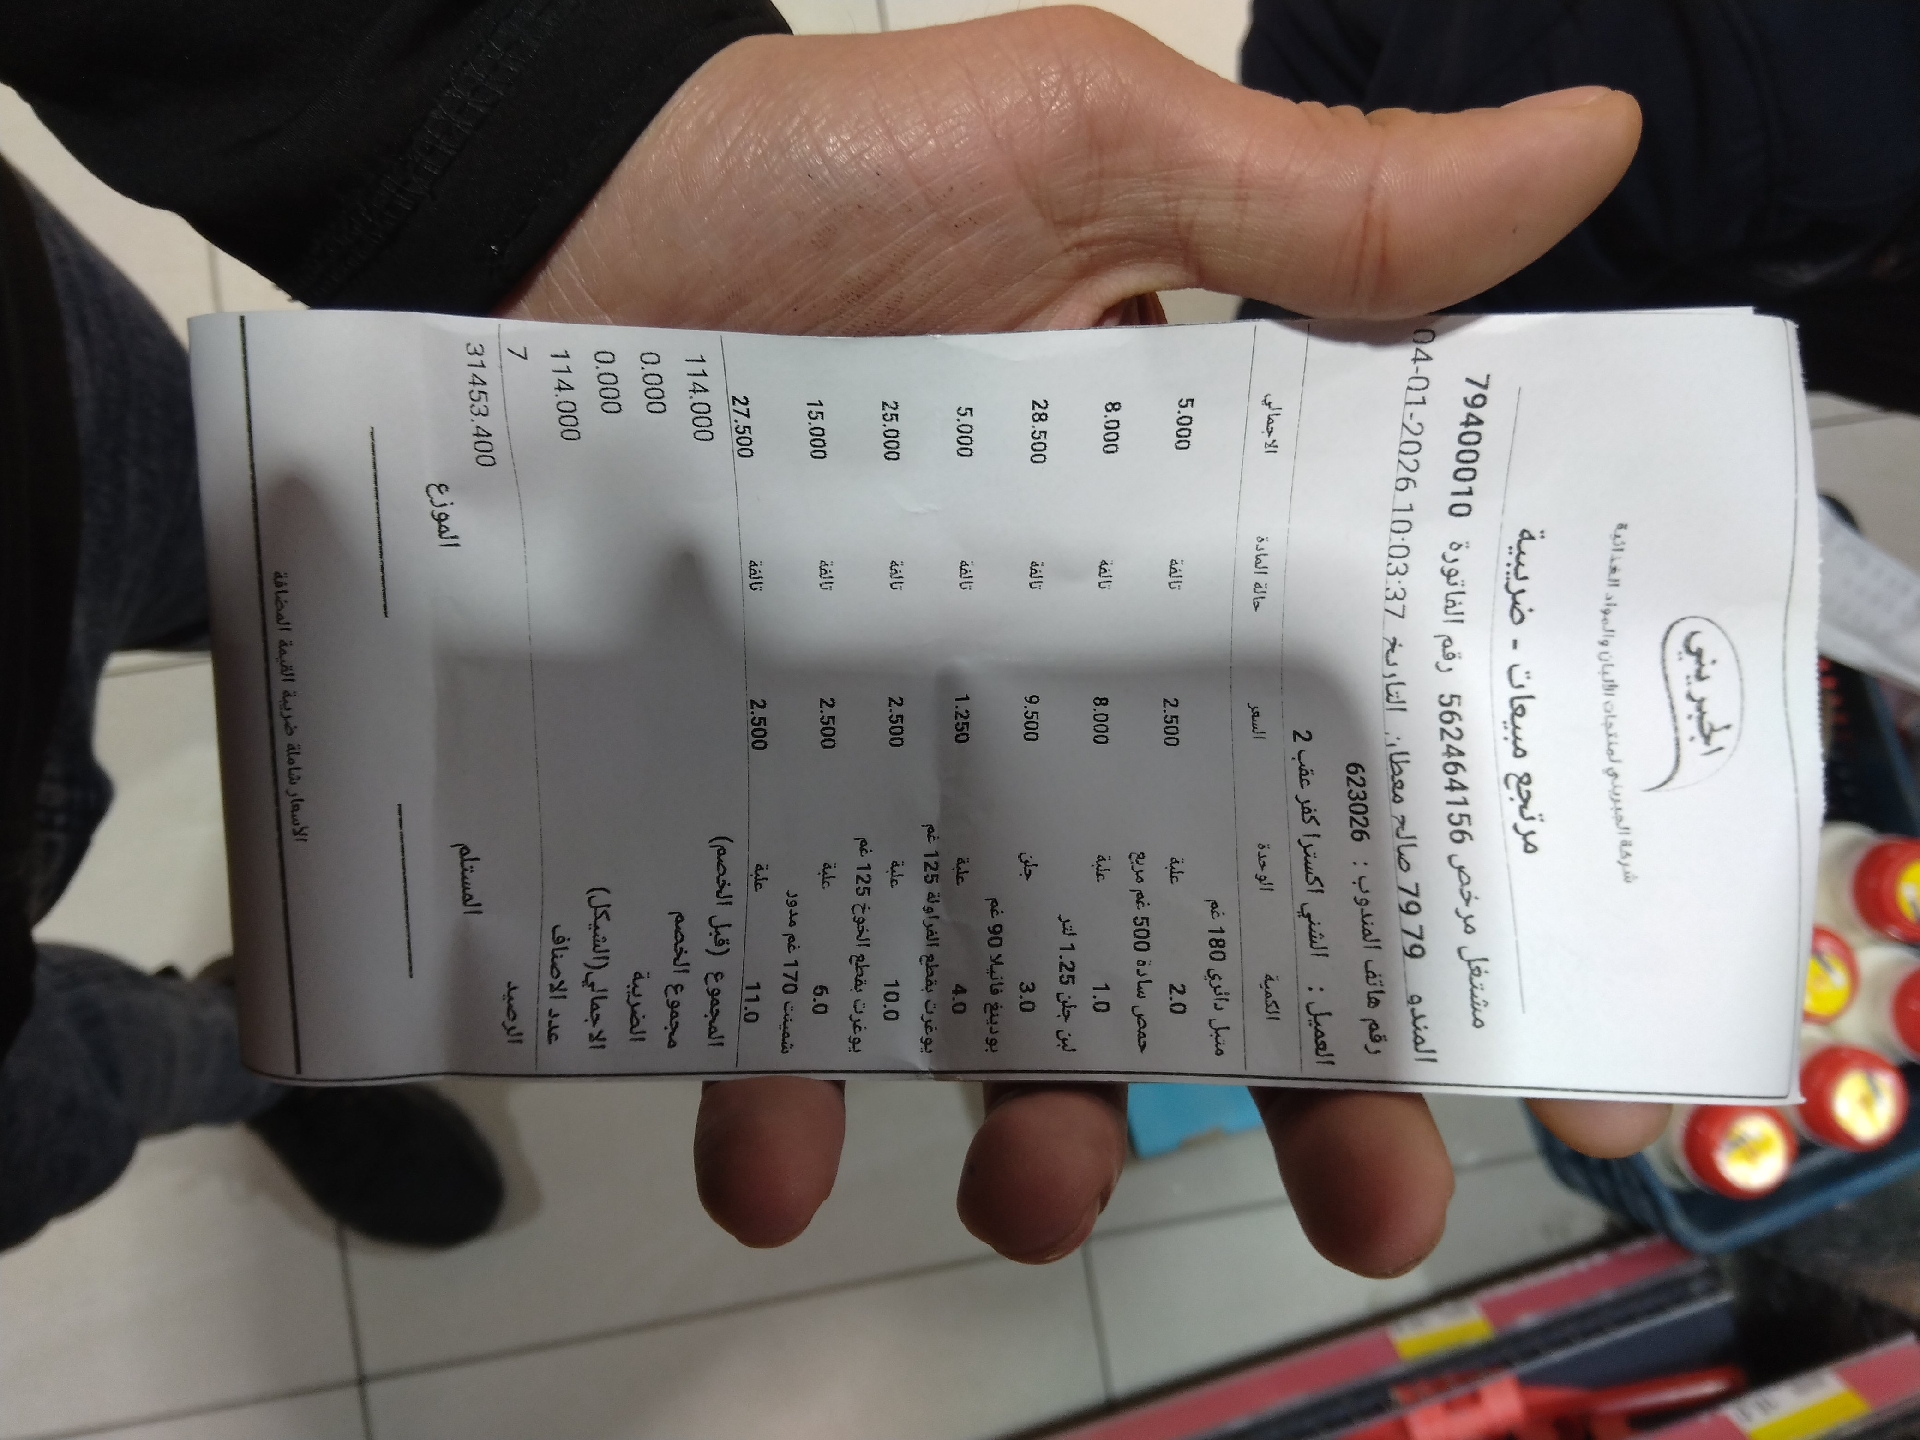 الجبريني
شركة الجبريني لمنتجات الألبان والمواد الغذائية
مرتجع مبيعات - ضريبية
مشتغل مرخص 562464156 رقم الفاتورة 79400010
المندو 79 79 صالح معطان التاريخ 04-01-2026 10:03:37
رقم هاتف المندوب : 623026
العميل : الشني اكسترا كفر عقب 2
الكمية الوحدة السعر حالة المادة الاجمالي
متبل دائري 180 غم
2.0 علبة 2.500 تالفة 5.000
حمص سادة 500 غم مربع
1.0 علبة 8.000 تالفة 8.000
لبن جلن 1.25 لتر
3.0 جلن 9.500 تالفة 28.500
بودينغ فانيلا 90 غم
4.0 علبة 1.250 تالفة 5.000
يوغرت بقطع الفراولة 125 غم
10.0 علبة 2.500 تالفة 25.000
يوغرت بقطع الخوخ 125 غم
6.0 علبة 2.500 تالفة 15.000
شمينت 170 غم مدور
11.0 علبة 2.500 تالفة 27.500
المجموع (قبل الخصم) 114.000
مجموع الخصم 0.000
الضريبة 0.000
الاجمالي(الشيكل) 114.000
عدد الاصناف 7
الرصيد 31453.400
المستلم الموزع
الاسعار شاملة ضريبة القيمة المضافة